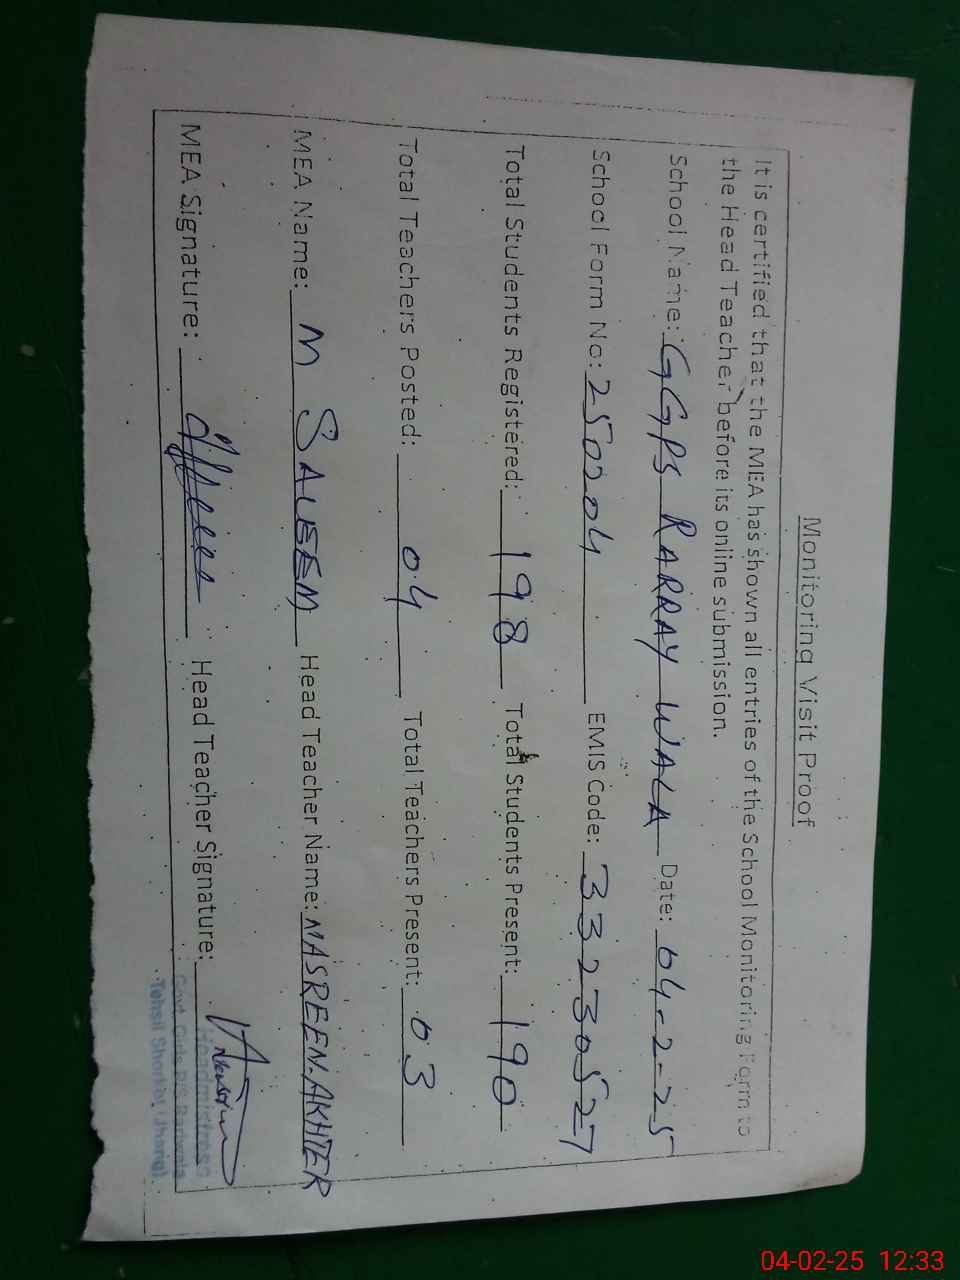 Monitoring Visit Proof
It is certified that the MEA has shown all entries of the School Monitoring Form to
the Head Teacher before its online submission.
School Name: GGPS RARRAY WALA Date: 04-2-25
School Form No: 25004 EMIS Code: 33230527
Total Students Registered: 198 Total Students Present: 190
Total Teachers Posted: 04 Total Teachers Present: 03
MEA Name: M SALEEM Head Teacher Name: NASREEN.AKHTER
MEA Signature: Head Teacher Signature:
Headmistress
Govt. Girls P/S Rariwala
Tehsil Shorkot (Jhang)
04-02-25 12:33